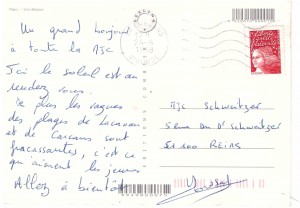 Un grand bonjour
à toute la MJC
Ici le soleil est au
rendez vous.
De plus les vagues
des plages de Lacanau
et de Carcans sont
fracassantes, c'est ce
qui aiment les jeunes
Allez à bientôt
MJC Schweitzer
Dr Schweitzer
51100 REIMS